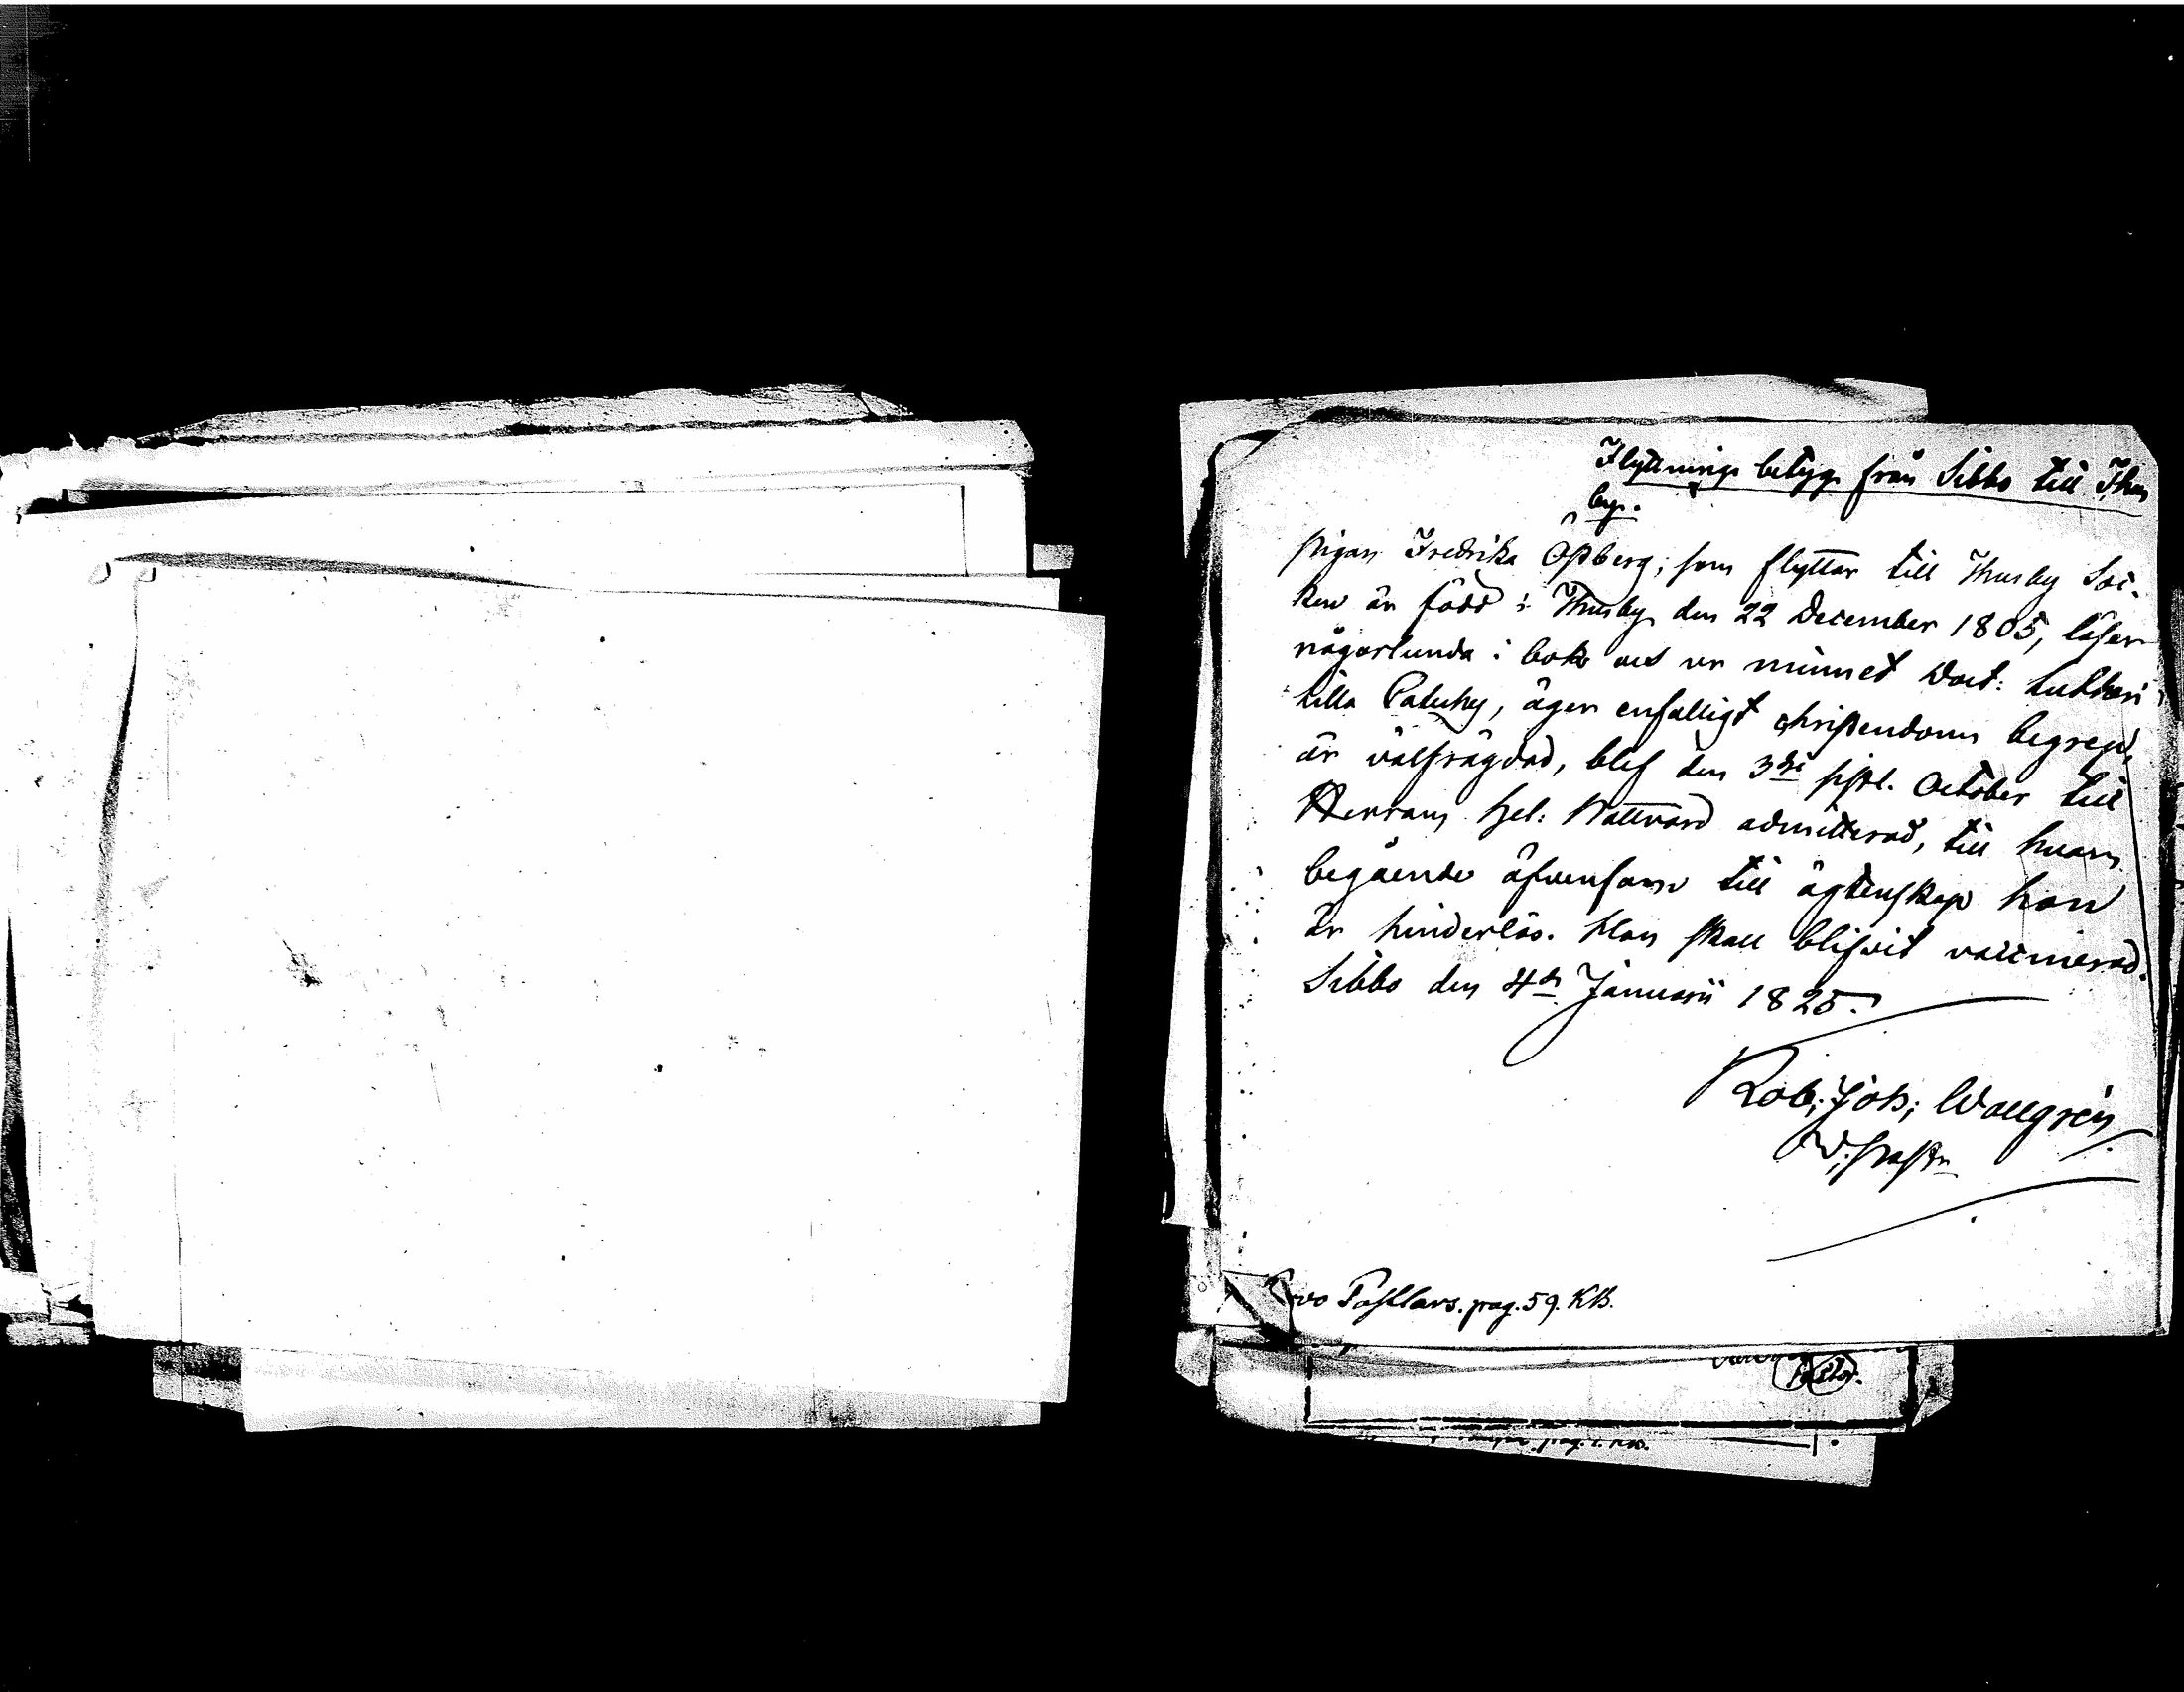 Flyttnings betyg från Sibbo till Thus
by.
Pigan Fredrika Öfberg; som flyttar till Thusby Soc-
ken är född i Thusby den 22 December 1805, läser
någorlunda i bok och ur minnet Doct: Lutheri
lilla Cateches, äger enfalligt christendoms begrep,
är välfrägdad, blef den 3die sistl. October till
Herrans Hel: Nattvard admitterad, till hvars
begående äfvensom till ägtenskap hon
är hinderlös. Hon skall blifvit vaccinerad.
Sibbo den 4de Januarii 1825.
Rob; Joh; Wallgrén
V; Pastor
pag. 59. KB.
Pastor.